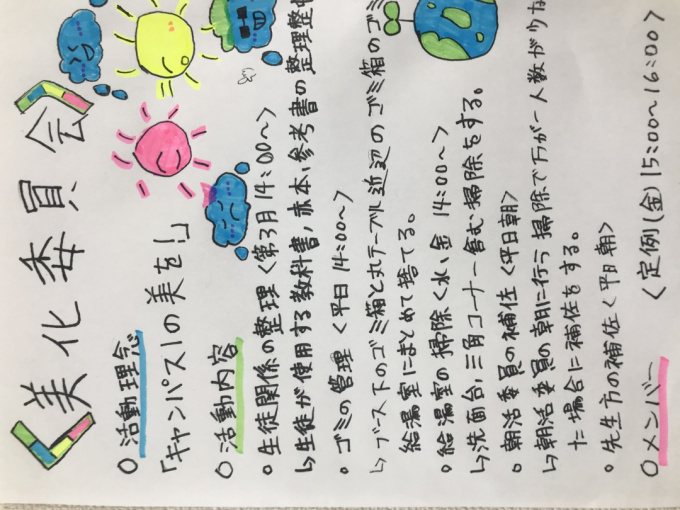 〈美化委員会〉
○活動理念
「キャンパス1の美を!」
○活動内容
・生徒関係の整理〈第3月14:00〜〉
↳生徒が使用する教科書,赤本,参考書の整理整
・ゴミの管理〈平日14:00〜〉
↳ブース下のゴミ箱と丸テーブル近辺のゴミ箱のゴミ
給湯室にまとめて捨てる。
・給湯室の掃除〈水,金 14:00〜〉
↳洗面台,三角コーナー含む掃除をする。
・朝活委員の補佐〈平日朝〉
↳朝活委員の朝に行う掃除で万が一人数が少な
た場合に補佐をする。
・先生方の補佐〈平日朝〉
○メンバー 〈定例(金)15:00〜16:00〉